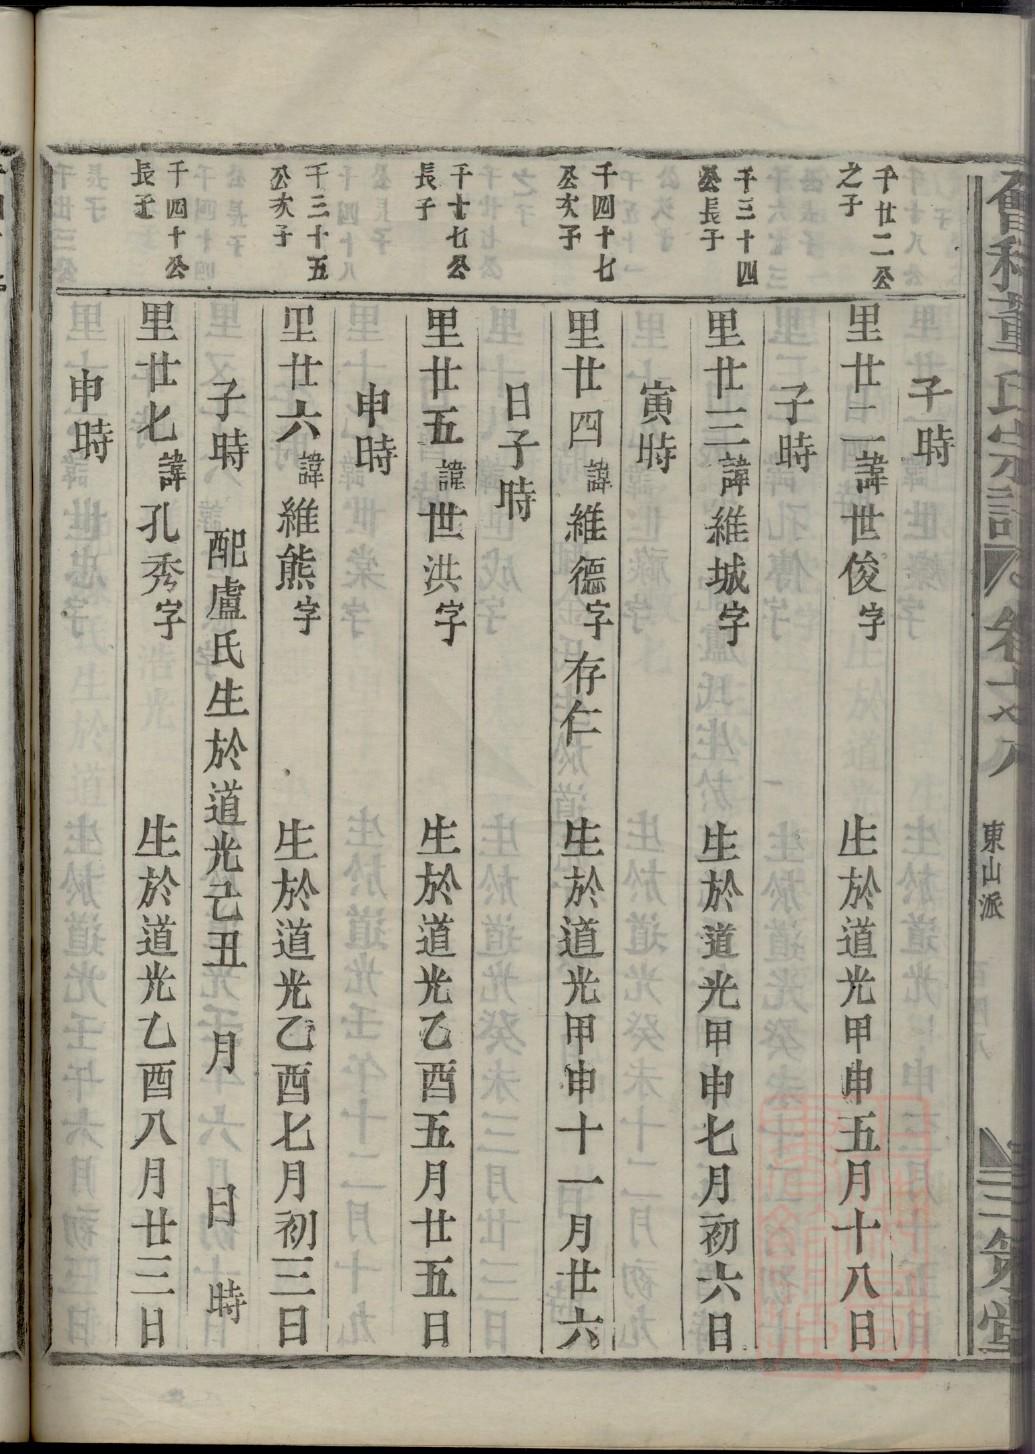 董氏宗譜 卷之八 東山派 三策堂
子時
千廿二公
之子
里廿二諱世俊字 生於道光甲申五月十八日
子時
千三十四
公長子
里廿三諱維城字 生於道光甲申七月初六日
寅時
千四十七
公次子
里廿四諱維德字存仁 生於道光甲申十一月廿六
日子時
千十七公
長子
里廿五諱世洪字 生於道光乙酉五月廿五日
申時
千三十五
公次子
里廿六諱維熊字 生於道光乙酉七月初三日
子時 配盧氏生於道光己丑 月 日 時
千四十公
長子
里廿七諱孔秀字 生於道光乙酉八月廿三日
申時